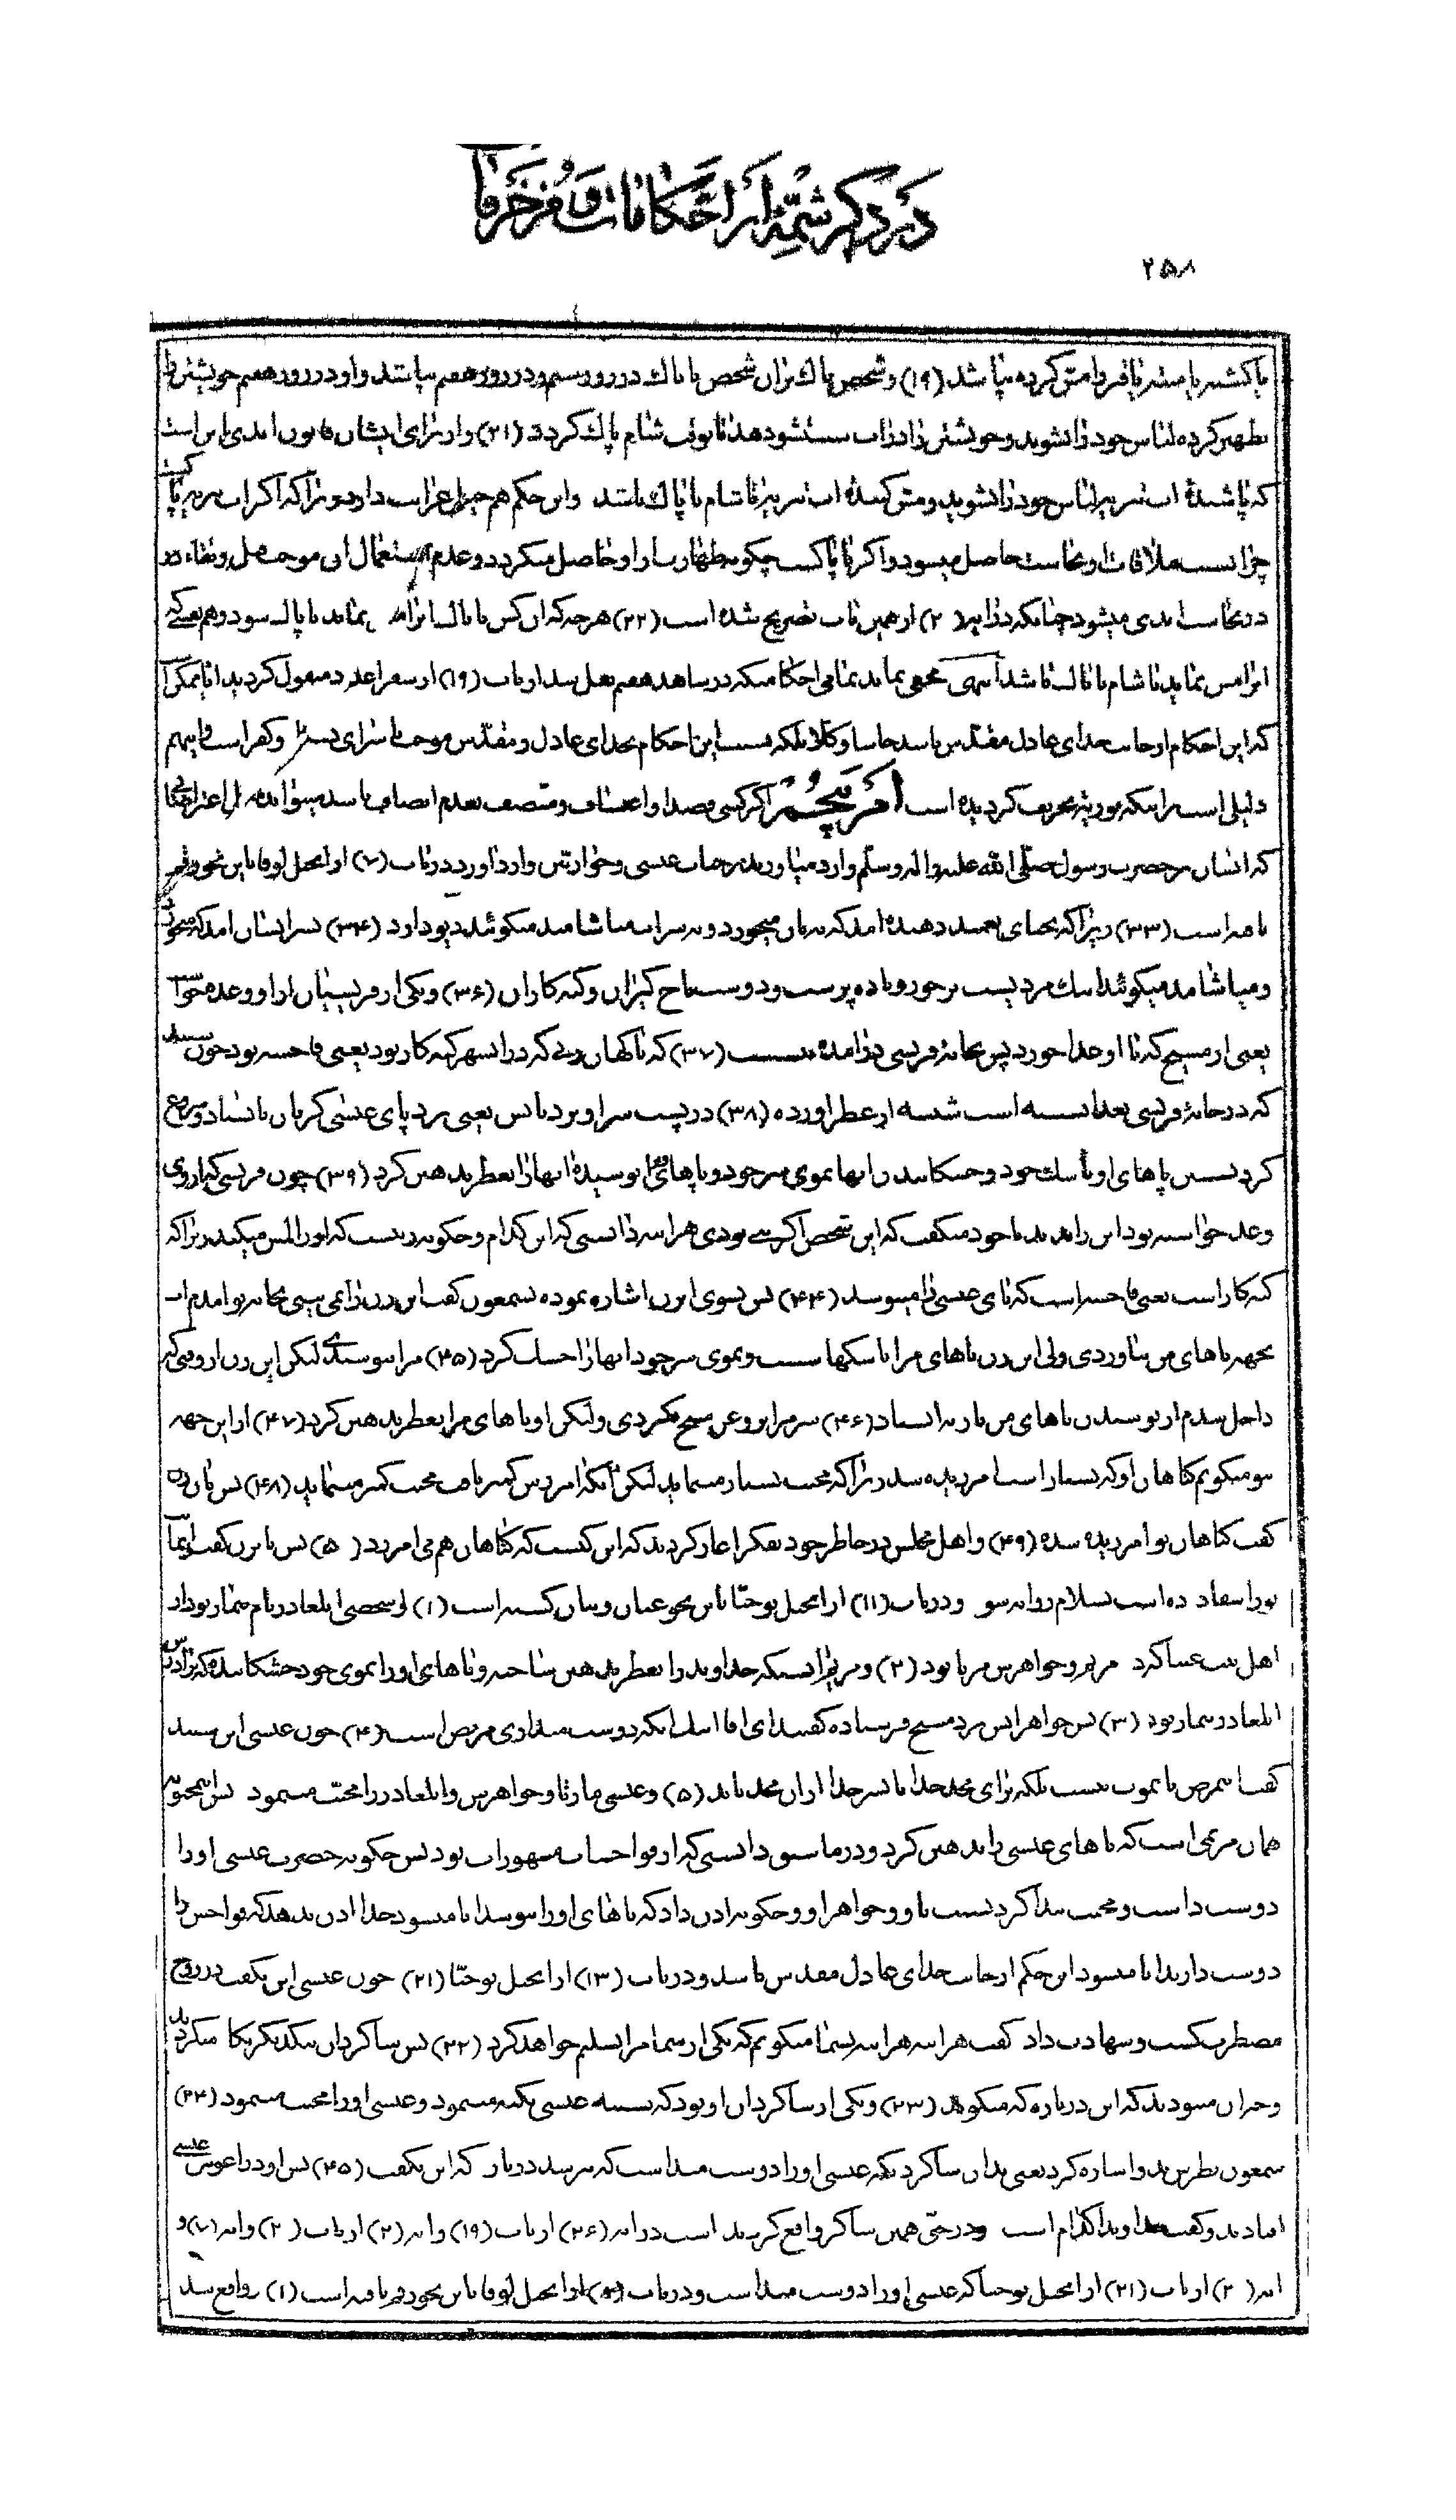 در ذکر شمّه از احکامات و مزخرفا
۲۵۸
یا کشته یا میته یا قبر را مس کرده میپاشد (۱۹) و شخص پاک بران شخص ناپاک در روز سیم و در روز هفتم بپاشد و او در روز هفتم خویشتن را
تطهیر کرده لباس خود را بشوید و خویشتن را در آب شستشو دهد تا بوقت شام پاک گردد (۲۱) و از برای ایشان قانون ابدی این است
که پاشندهٔ آب تنزیه لباس خود را بشوید و مس کنندهٔ آب تنزیه تا شام ناپاک باشد و این حکم هم خیلی غرابت دارد زیرا که اگر آب تنزیه پاکست
چرا بسبب ملاقات او نجاست حاصل میشود و اگر ناپاکست چگونه طهارت از او حاصل میگردد و عدم استعمال آن موجب قتل و بقاء در
در نجاست ابدی میشود چنانکه در آیه (۲۰) از همین باب تصریح شده است (۲۲) هر چه که آن کس ناپاک آنرا مس نماید ناپاک شود و هر کسیکه
آنرا مس نماید تا شام ناپاک باشد انتهی مخفی نماند تمامی احکامیکه در شاهد هفتم نقل شد از باب (۱۹) از سفر اعداد منقول گردید آیا ممکن است
که این احکام از جانب خدای عادل مقدّس باشد حاشا و کلا بلکه نسبت این احکام بخدای عادل و مقدّس موجب ناسزای و کفر است فافهم
دلیل است بر اینکه توریة تحریف گردیده است امر پنجم اگر کسی و متصف بعدم انصاف باشد میتواند اعتراضاتی
که ایشان بر حضرت رسول صلّی الله علیه و آله و سلّم وارد میاورند بر جناب عیسی و حواریّین وارد آورد در باب (۷) از انجیل لوقا باین نحو رقم
یافته است (۳۳) زیرا که یحیای تعمید دهنده آمد که نه نان میخورد و نه شراب میاشامید میگوئید دیو دارد (۳۴) پسر انسان آمد که میخورد
و میاشامد میگوئید اینک مردیست پرخور و باده پرست و دوست باج گیران و گنه کاران (۳۶) و یکی از فریسیان از او وعده خواست
یعنی از مسیح که با او غذا خورد پس بخانهٔ فریسی در آمده بنشست (۳۷) که ناگهان زنی که در آن شهر گنه کار بود یعنی فاحشه بود چون شنید
که در خانهٔ فریسی بغذا نشسته است شیشه از عطر آورده (۳۸) در پشت سر او نزد پایش یعنی نزد پای عیسی گریان بایستاد و شروع
کرد بشستن پاهای او باشک خود و خشکانیدن آنها بموی سر خود و پاهای او را بوسیده آنها را بعطر تدهین کرد (۳۹) چون فریسی که از وی
وعده خواسته بود این را بدید با خود میگفت که این شخص اگر نبی بودی هراینه دانستی که این کدام و چگونه زنست که او را لمس میکند زیرا که
گنه کار است یعنی فاحشه است که پای عیسی را میبوسد (۴۴) پس بسوی آن زن اشاره نموده بشمعون گفت این زن را نمی بینی بخانه تو آمدم آب
بجهت پاهای من نیاوردی ولی این زن پاهای مرا باشکها شست و بموی سر خود آنها را خشک کرد (۴۵) مرا نبوسیدی لیکن این زن از وقتی که
داخل شدم از بوسیدن پاهای من باز نه ایستاد (۴۶) سر مرا بروغن مسح نکردی ولیکن او پاهای مرا بعطر تدهین کرد (۴۷) از این جهت
بتو میگویم گناهان او که بسیار است آمرزیده شد زیرا که محبت بسیار مینماید لیکن آنکه آمرزش کمتر یافت محبت کمتر مینماید (۴۸) پس بان زن
گفت گناهان تو آمرزیده شده (۴۹) و اهل مجلس در خاطر خود تفکر آغاز کردند که این کیست که گناهان هم می آمرزد (۵۰) پس بان زن گفت ایمانت
تو را نجات داده است بسلام روانه شو و در باب (۱۱) از انجیل یوحنّا باین نحو عیان و بیان گشته است (۱) و شخصی ایلعاذر نام بیمار بود از
اهل بیت عنیا که ده مریم و خواهرش مرثا بود (۲) و مریم آنستکه خداوند را بعطر تدهین ساخت و پاهای او را بموی خود خشکانید که برادرش
ایلعاذر بیمار بود (۳) پس خواهرانش نزد مسیح فرستاده گفتند ای آقا اینک آنکه دوست میداری مریض است (۴) چون عیسی این شنید
گفت این مرض تا بموت نیست بلکه برای مجد خدا تا پسر خدا از آن مجد یابد (۵) و عیسی مارثا و خواهرش و ایلعاذر را محبّت مینمود پس این محبوبه
همان مریمی است که پاهای عیسی را تدهین کرد و در ما سبق دانستی که از فواحشات مشهورات بود پس چگونه حضرت عیسی او را
دوست داشت و محبت پیدا کرد نسبت باو و خواهر او و چگونه اذن داد که پاهای او را ببوسد آیا میشود خدا اذن بدهد که فواحش را
دوست دارید آیا میشود این حکم از جانب خدای عادل مقدس باشد و در باب (۱۳) از انجیل یوحنّا (۲۱) چون عیسی این بگفت در روح
مضطرب گشت و شهادت داد گفت هراینه هراینه بشما میگویم که یکی از شما مرا تسلیم خواهد کرد (۲۲) پس شاگردان بیکدیگر نگاه میکردند
و حیران میبودند که این درباره که میگوید (۲۳) و یکی از شاگردان او بود که بسینه عیسی تکیه مینمود و عیسی او را محبت مینمود (۲۴)
شمعون پطرس بدو اشاره کرد یعنی بدان شاگرد که عیسی او را دوست میداشت که بپرسد درباره که این بگفت (۲۵) پس او در آغوش عیسی
افتاده بدو گفت خداوندا کدام است و در حق همین شاگرد واقع گردیده است در آیه (۲۶) از باب (۱۹) و آیه (۲) از باب (۲۰) و آیه (۷) و
آیه (۲۰) از باب (۲۱) از انجیل یوحنا که عیسی او را دوست میداشت و در باب (۸) از انجیل لوقا باین نحو رقم یافته است (۱) و واقع شد